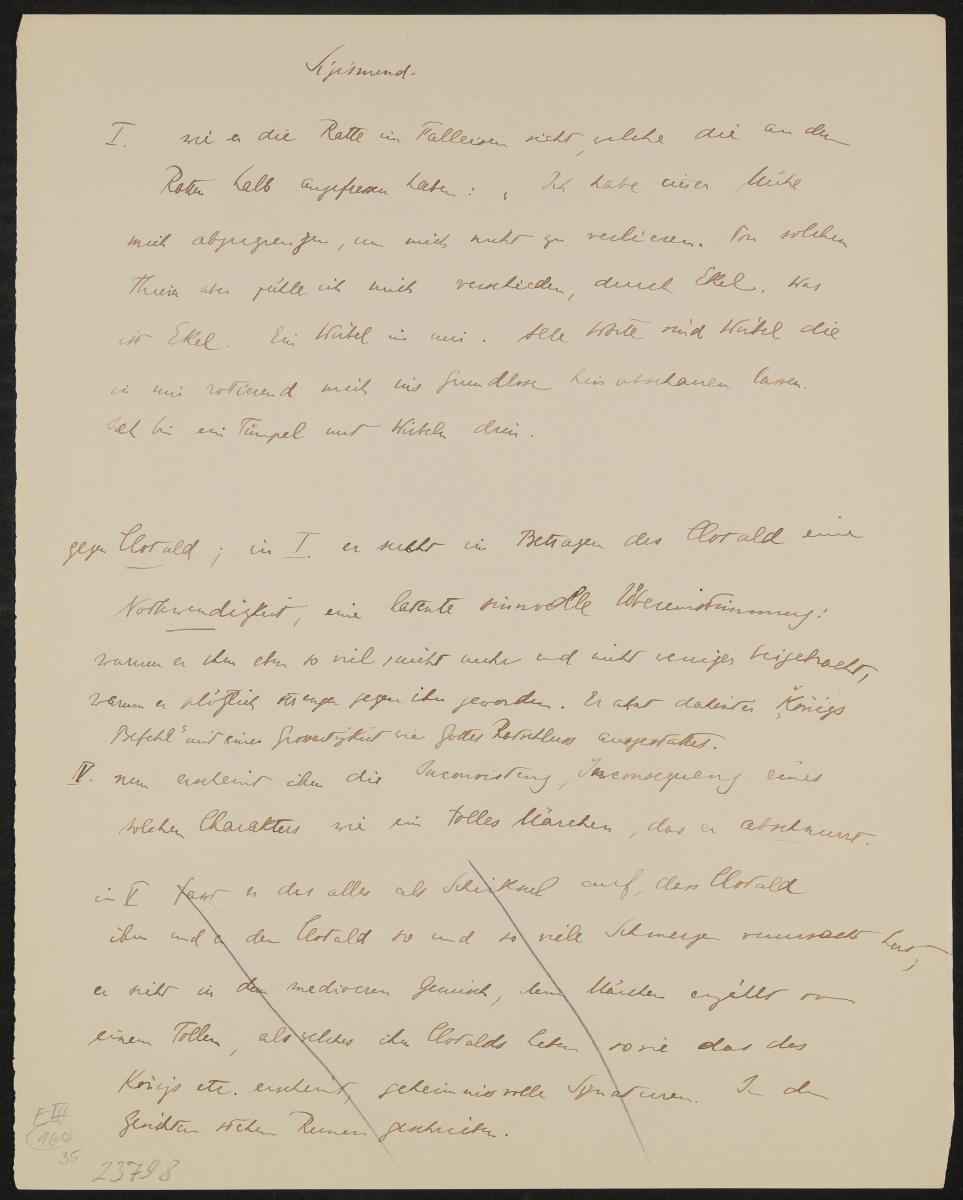 Sigismund.
I. wie er die Ratte im Falleisen sieht, welche die andern
Ratten halb angefressen haben: „Ich habe immer Mühe
mich abzugrenzen, um mich nicht zu verlieren. Von solchen
Thieren aber fühle ich mich verschieden, durch Ekel. Was
ist Ekel. Ein Wirbel in mir. Alle Worte sind Wirbel die
in mir rotierend mich ins Grundlose hinabschauen lassen.
Ich bin ein Tümpel mit Wirbeln drin.
gegen Clotald; in I. er sucht im Betragen des Clotald eine
Nothwendigkeit, eine latente sinnvolle Übereinstimmung:
warum er ihm eben so viel, nicht mehr und nicht weniger beigebracht,
warum er plötzlich strenger gegen ihn geworden. Er ahnt dahinter „Königs
Befehl" mit einer Grossartigkeit wie Gottes Ratschluss ausgestattet.
IV. nun erscheint ihm die Inconsistenz, Inconsequenz eines
solchen Charakters wie ein tolles Märchen, das er abschnurrt.
in V fasst er das alles als Schicksal auf, dass Clotald
ihm und er dem Clotald so und so viele Schmerzen verursacht hat;
er sieht in dem mediocren Gemisch, dem Märchen erzählt von
einem Tollen, als welches ihm Clotalds Leben sowie das des
Königs etc. erscheint, geheimnisvolle Signaturen. In den
Gesichtern stehen Runen geschrieben.
E III
160
35
23798